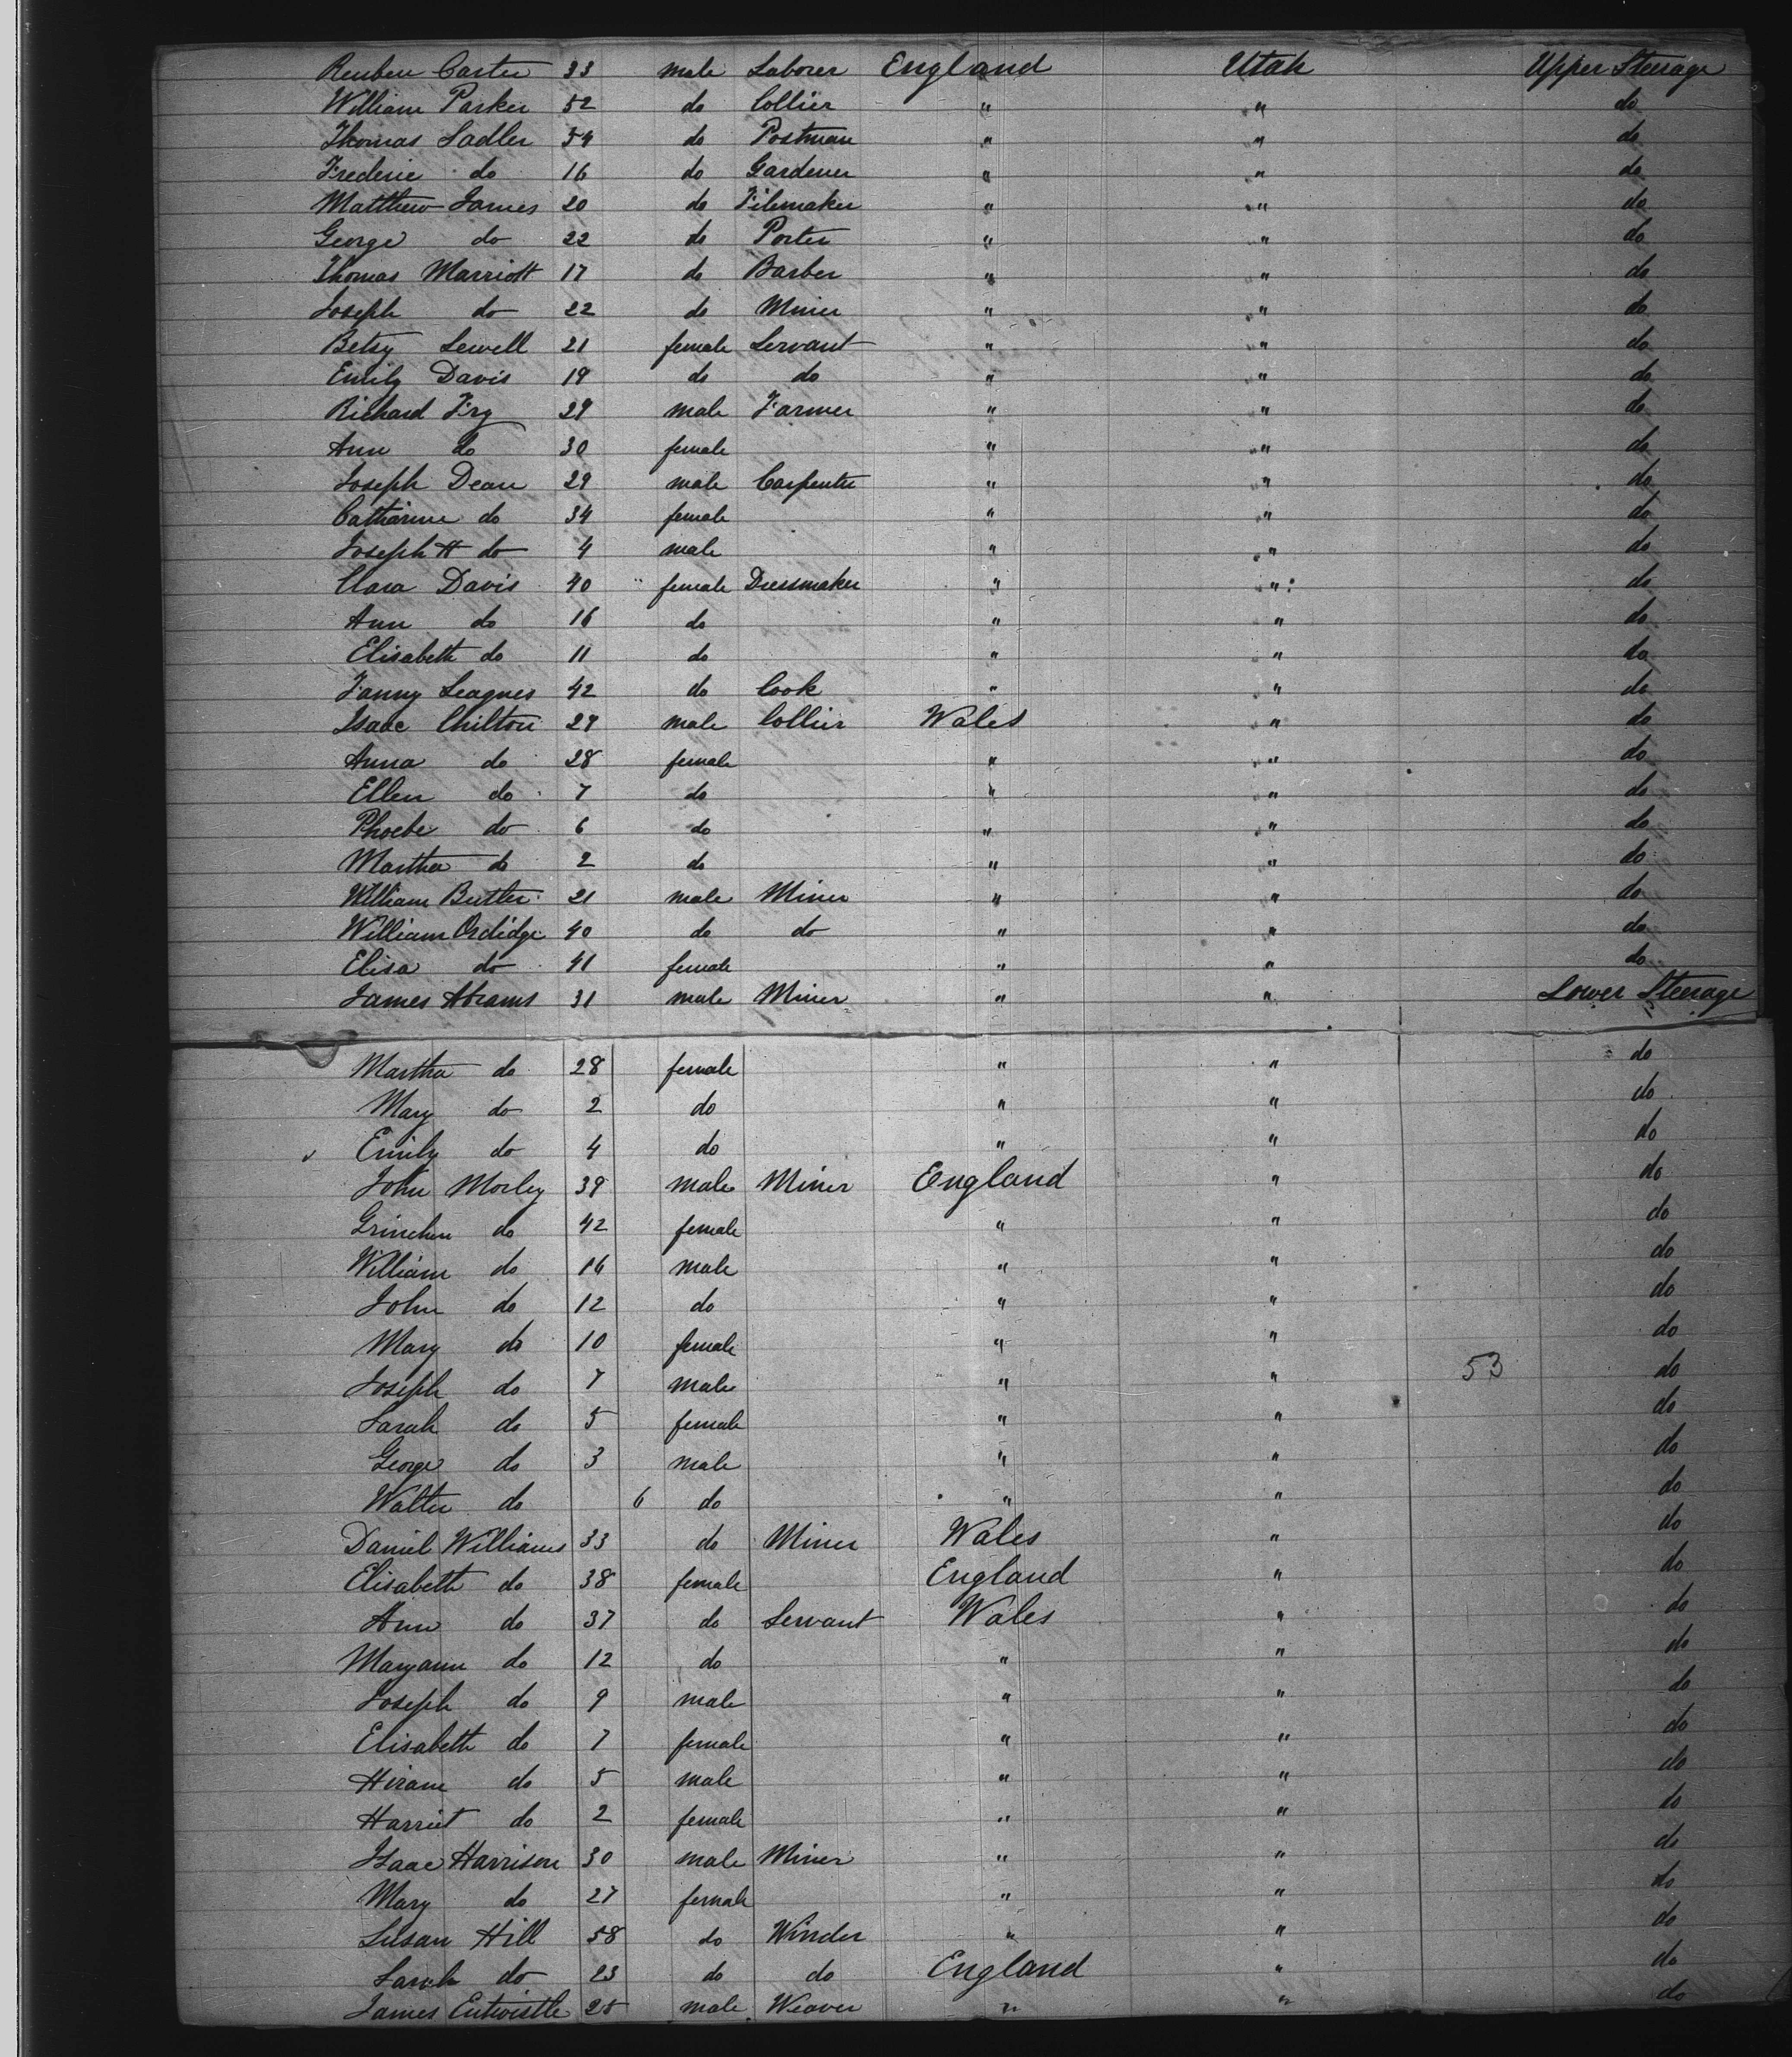 Reuben Carter 33 male Laborer England Utah Upper Steerage
William Parker 52 do Collier " " do
Thomas Sadler 54 do Postman " " do
Frederic do 16 do Gardener " " do
Matthew James 20 do Filemaker " " do
George do 22 do Porter " " do
Thomas Marriott 17 do Barber " " do
Joseph do 22 do Miner " " do
Betsy Sewell 21 female Servant " " do
Emily Davis 19 do do " " do
Richard Fry 29 male Farmer " " do
Ann do 30 female " " do
Joseph Dean 29 male Carpenter " " do
Catharine do 34 female " " do
Joseph H do 4 male " " do
Clara Davis 40 female Dressmaker " " do
Ann do 16 do " " do
Elisabeth do 11 do " " do
Fanny 42 do Cook " " do
Isaac Chilton 29 male Collier Wales " do
Anna do 28 female " " do
Ellen do 7 do " " do
Phoebe do 6 do " " do
Martha do 2 do " " do
William Butler 21 male Miner " " do
William 40 do do " " do
Elisa do 41 female " " do
James Abrams 31 male Miner " " Lower Steerage
Martha do 28 female " " do
Mary do 2 do " " do
Emily do 4 do " " do
John Morley 39 male Miner England " do
do 42 female " " do
William do 16 male " " do
John do 12 do " " do
Mary do 10 female " " do
Joseph do 7 male " " 53 do
Sarah do 5 female " " do
George do 3 male " " do
Walter do 6 do " " do
Daniel Williams 33 do Miner Wales " do
Elisabeth do 38 female England " do
Ann do 37 do Servant Wales " do
Maryann do 12 do " " do
Joseph do 9 male " " do
Elisabeth do 7 female " " do
Hiram do 5 male " " do
Harriet do 2 female " " do
Isaac Harrison 30 male Miner " " do
Mary do 27 female " " do
Susan Hill 58 do Winder " " do
Sarah do 23 do do England " do
James Entwistle 25 male Weaver " " do